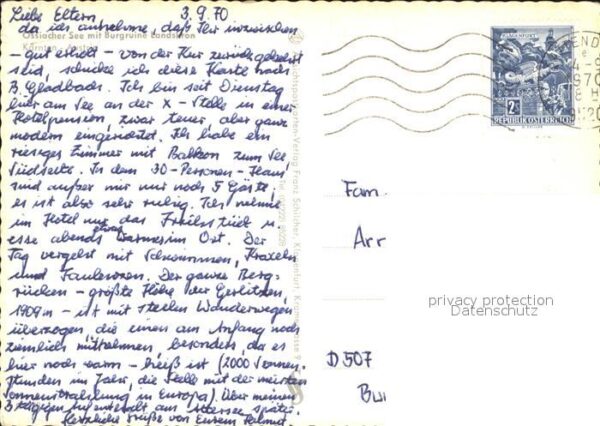 Liebe Eltern 3.9.70
da ich annehme, daß Ihr inzwischen
Ossiacher See mit Burgruine Landskron
- gut erholt - von der Kur zurückgekehrt
Kärnten
seid, schicke ich diese Karte nach
B. Gladbach. Ich bin seit Dienstag
hier am See an der X-Stelle in einer
Hotelpension, zwar teuer, aber ganz
modern eingerichtet. Ich habe ein
riesiges Zimmer mit Balkon zum See,
Südseite. In dem 30-Personen-Haus
sind außer mir nur noch 5 Gäste,
es ist also sehr ruhig. Ich nehme
im Hotel nur das Frühstück u.
esse abends etwas Warmes im Ort. Der
Tag vergeht mit Schwimmen, Kraxeln
und Faulenzen. Der ganze Berg-
rücken - größte Höhe der Gerlitzen,
1909 m - ist mit steilen Wanderwegen
überzogen, die einen am Anfang noch
ziemlich mitnehmen, besonders, da es
hier noch warm - heiß ist (2000 Sonnen-
stunden im Jahr, die Stelle mit der meisten
Sonnenstrahlung in Europa). Über meinen
3 tägigen Aufenthalt am Attersee später.
Herzliche Grüße von Eurem Helmut
2 S
REPUBLIK ÖSTERREICH
Fam.
Arr
privacy protection
Datenschutz
D 507